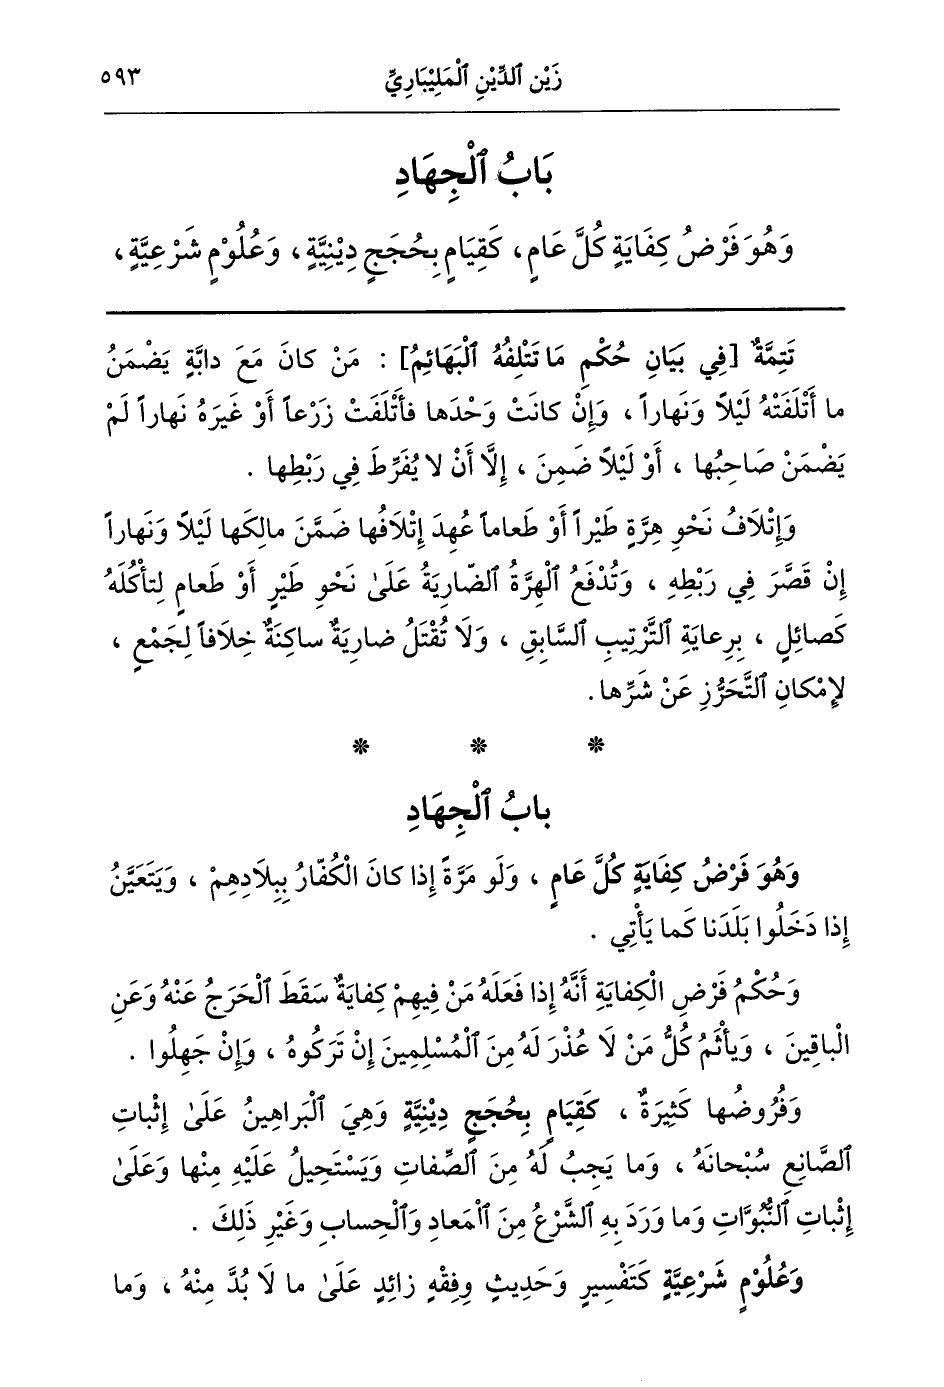 زَيْن ٱلدِّيْنِ ٱلْمَلِيْبَارِيِّ ٥٩٣
بَابُ ٱلْجِهَادِ
وَهُوَ فَرْضُ كِفَايَةٍ كُلَّ عَامٍ، كَقِيَامٍ بِحُجَجٍ دِيْنِيَّةٍ، وَعُلُوْمٍ شَرْعِيَّةٍ،
تَتِمَّةٌ [فِي بَيَانِ حُكْمِ مَا تَتْلِفُهُ ٱلْبَهَائِمُ] : مَنْ كانَ مَعَ دابَّةٍ يَضْمَنُ
ما أَتْلَفَتْهُ لَيْلاً وَنَهاراً ، وَإِنْ كانَتْ وَحْدَها فأَتْلَفَتْ زَرْعاً أَوْ غَيَرَهُ نَهاراً لَمْ
يَضْمَنْ صَاحِبُها ، أَوْ لَيْلاً ضَمِنَ ، إِلَّا أَنْ لا يُفَرِّطَ فِي رَبْطِها .
وَإِتْلَافُ نَحْوِ هِرَّةٍ طَيْراً أَوْ طَعاماً عُهِدَ إِتْلَافُها ضَمَّنَ مالِكَها لَيْلاً وَنَهاراً
إِنْ قَصَّرَ فِي رَبْطِهِ ، وَتُدْفَعُ ٱلْهِرَّةُ ٱلضّارِيَةُ عَلَىٰ نَحْوِ طَيْرٍ أَوْ طَعامٍ لِتأْكُلَهُ
كَصائِلٍ ، بِرِعايَةِ ٱلتَّرْتِيبِ ٱلسَّابِقِ ، وَلَا تُقْتَلُ ضارِيَةٌ ساكِنَةٌ خِلَافاً لِجَمْعٍ ،
لإِمْكانِ ٱلتَّحَرُّزِ عَنْ شَرِّها .
* * *
بابُ ٱلْجِهَادِ
وَهُوَ فَرْضُ كِفَايَةٍ كُلَّ عَامٍ ، وَلَو مَرَّةً إِذا كانَ الْكُفّارُ بِبِلَادِهِمْ ، وَيَتَعَيَّنُ
إِذا دَخَلُوا بَلَدَنا كَما يَأْتِي .
وَحُكْمُ فَرْضِ الْكِفايَةِ أَنَّهُ إِذا فَعَلَهُ مَنْ فِيهِمْ كِفايَةٌ سَقَطَ ٱلْحَرَجُ عَنْهُ وَعَنِ
الْباقِينَ ، وَيأْثَمُ كُلُّ مَنْ لَا عُذْرَ لَهُ مِنَ ٱلْمُسْلِمِينَ إِنْ تَرَكُوهُ ، وَإِنْ جَهِلُوا .
وَفُرُوضُها كَثِيرَةٌ ، كَقِيَامٍ بِحُجَجٍ دِيْنِيَّةٍ وَهِيَ ٱلْبَراهِينُ عَلَىٰ إِثْباتِ
ٱلصَّانِعِ سُبْحانَهُ ، وَما يَجِبُ لَهُ مِنَ ٱلصِّفاتِ وَيَسْتَحِيلُ عَلَيْهِ مِنْها وَعَلَىٰ
إِثْباتِ ٱلنُّبُوَّاتِ وَما وَرَدَ بِهِ ٱلشَّرْعُ مِنَ ٱلْمَعادِ وَٱلْحِسابِ وَغَيْرِ ذَلِكَ .
وَعُلُوْمٍ شَرْعِيَّةٍ كَتَفْسِيرٍ وَحَدِيثٍ وَفِقْهٍ زائِدٍ عَلَىٰ ما لَا بُدَّ مِنْهُ ، وَما